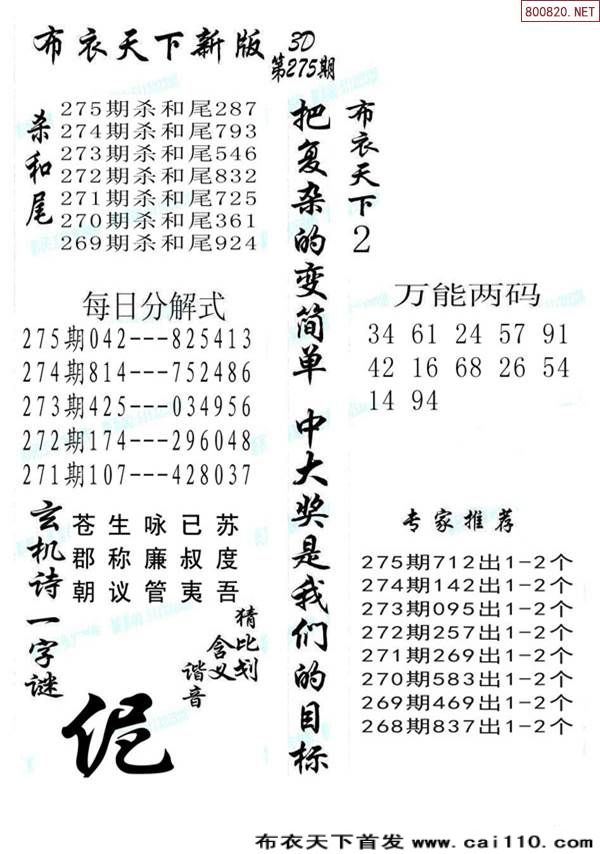 800820.NET
布衣天下新版
3D
第275期
杀和尾
275期杀和尾287
274期杀和尾793
273期杀和尾546
272期杀和尾832
271期杀和尾725
270期杀和尾361
269期杀和尾924
每日分解式
275期042---825413
274期814---752486
273期425---034956
272期174---296048
271期107---428037
玄机诗
苍生咏已苏
郡称廉叔度
朝议管夷吾
一字谜
猜比划
含义
谐音
伲
把复杂的变简单 中大奖是我们的目标
布衣天下2
万能两码
34 61 24 57 91
42 16 68 26 54
14 94
专家推荐
275期712出1-2个
274期142出1-2个
273期095出1-2个
272期257出1-2个
271期269出1-2个
270期583出1-2个
269期469出1-2个
268期837出1-2个
布衣天下首发 www.cai110.com